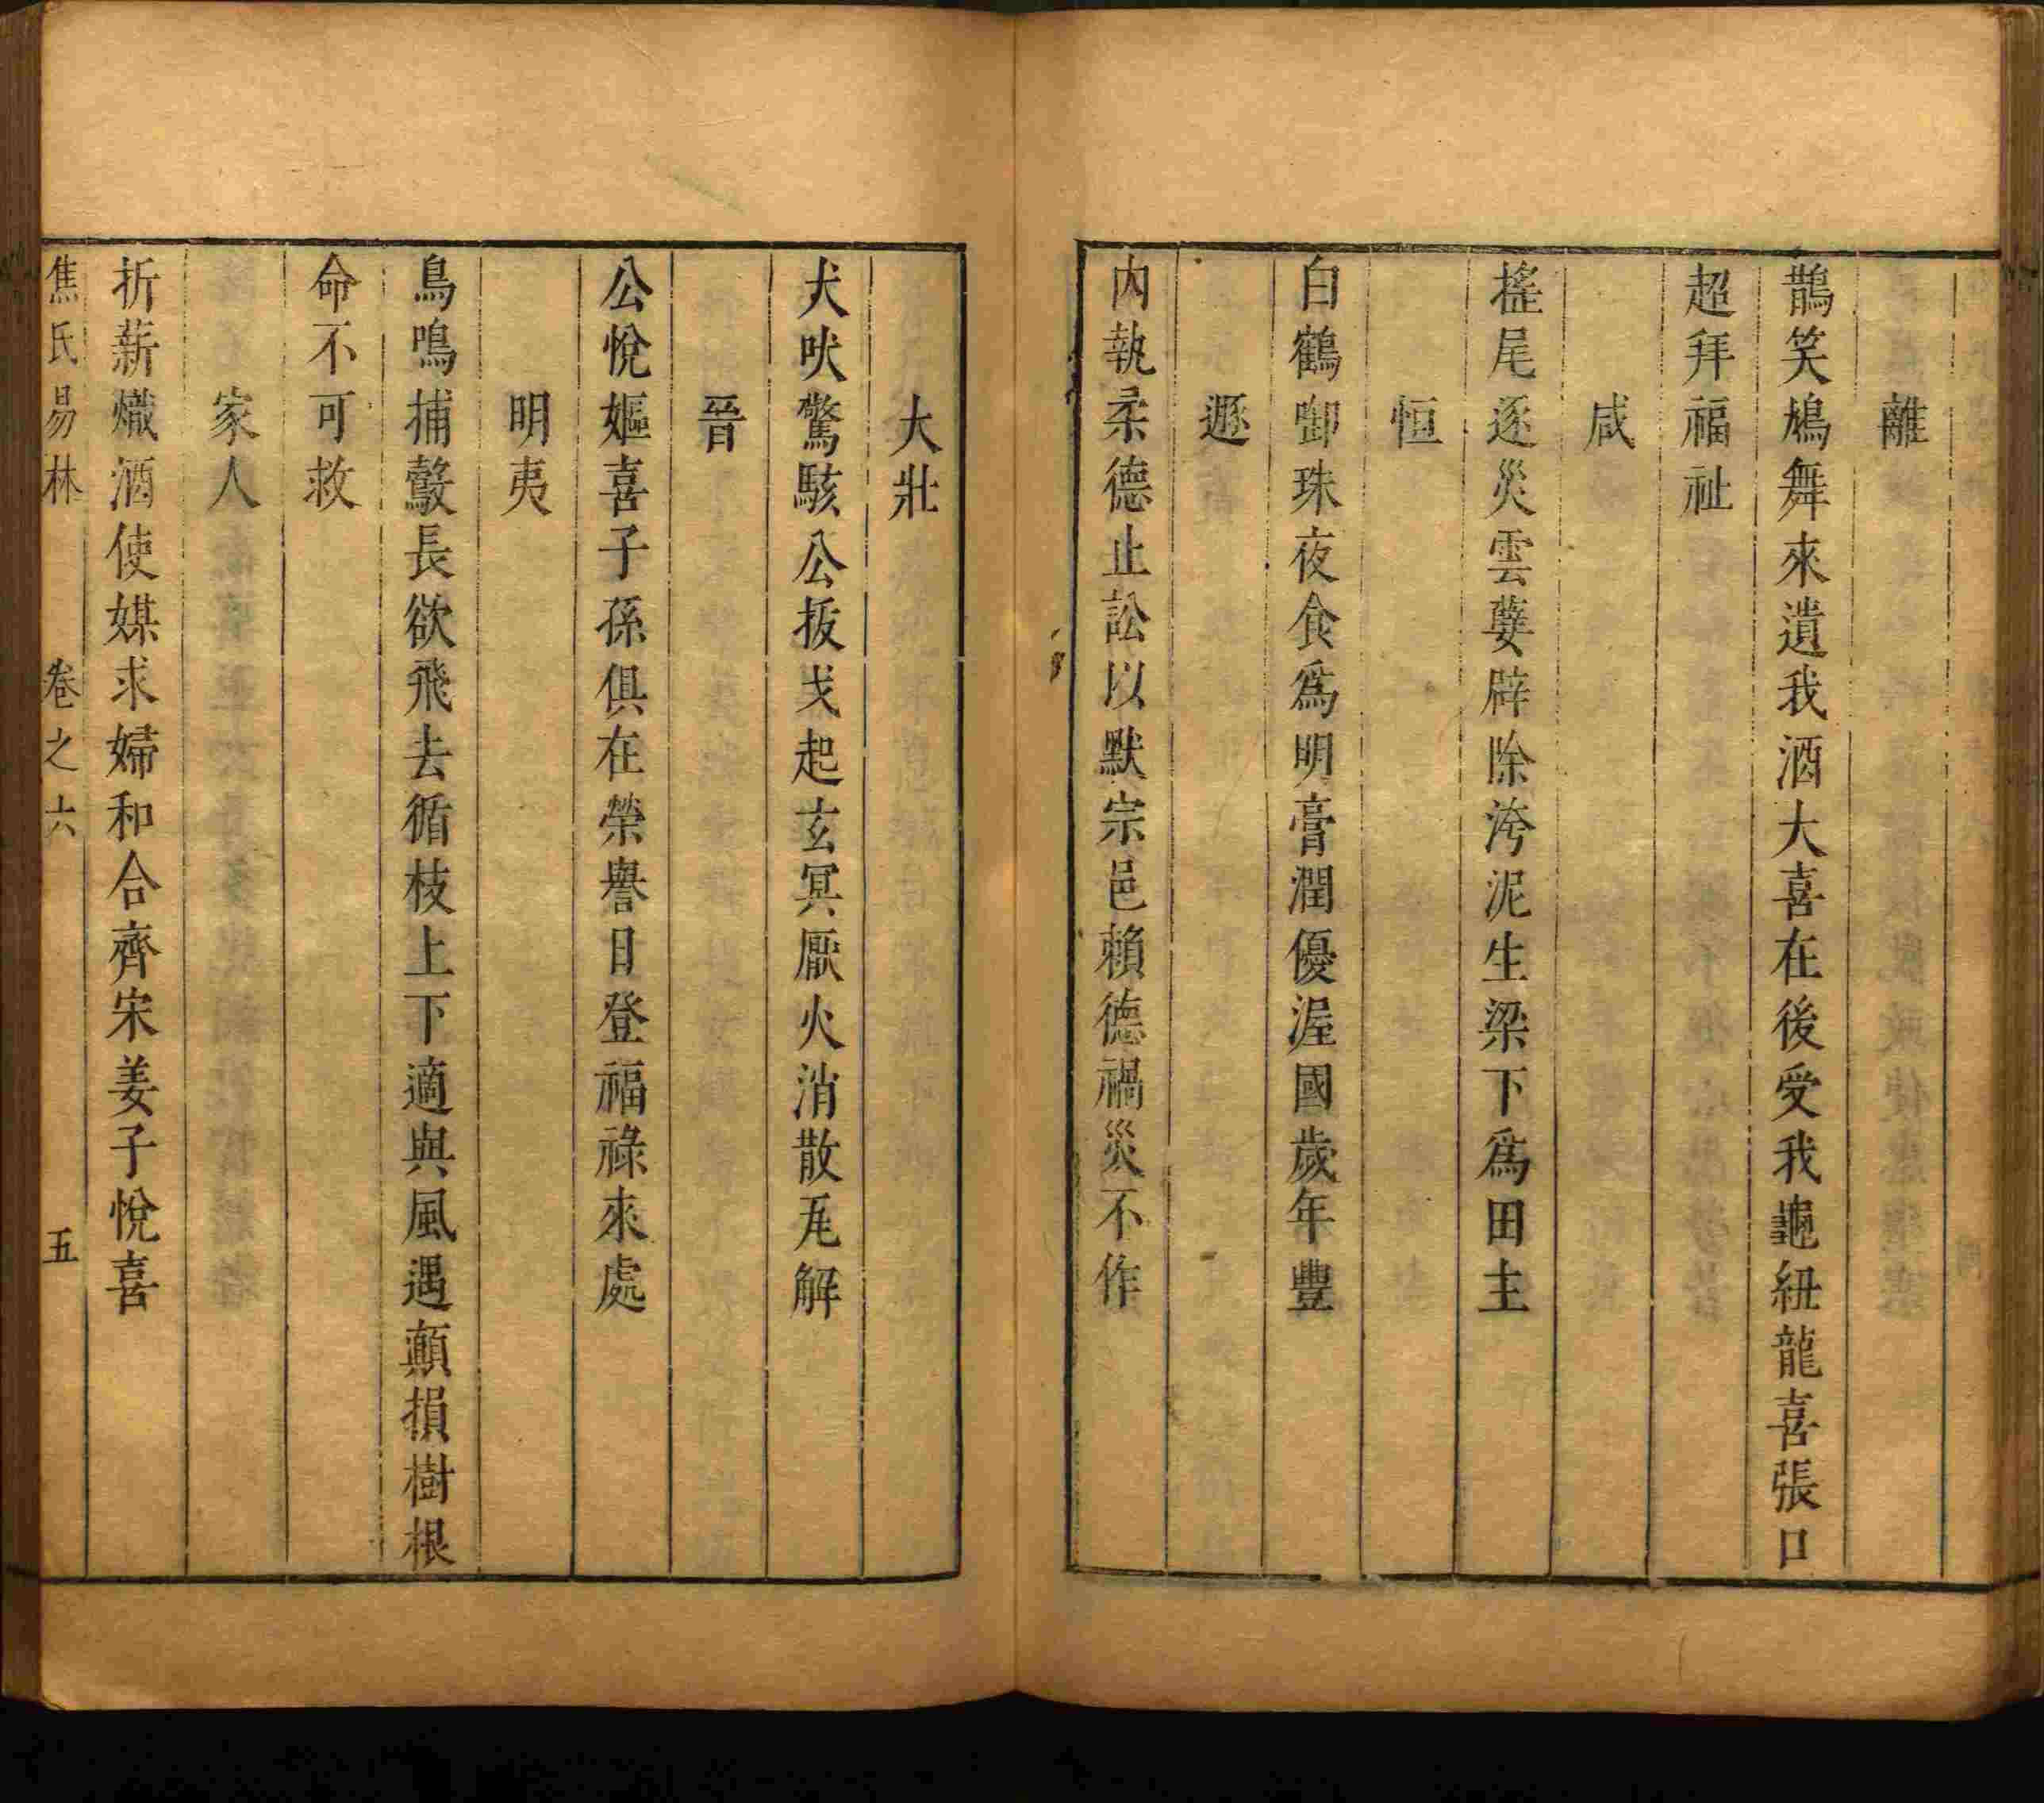 離
鵲笑鳩舞來遺我酒大喜在後受我龜紐龍喜張口
超拜福祉
咸
搖尾逐災雲孽辟除洿泥生梁下爲田主
恒
白鶴啣珠夜食爲明膏潤優渥國歲年豐
遯
內執柔德止訟以默宗邑賴德禍災不作
大壯
犬吠驚駭公拔戈起玄冥厭火消散瓦解
晉
公悅嫗喜子孫俱在榮譽日登福祿來處
明夷
鳥鳴捕鷇長欲飛去循枝上下適與風遇顛損樹根
命不可救
家人
折薪熾酒使媒求婦和合齊宋姜子悅喜
焦氏易林 卷之六 五